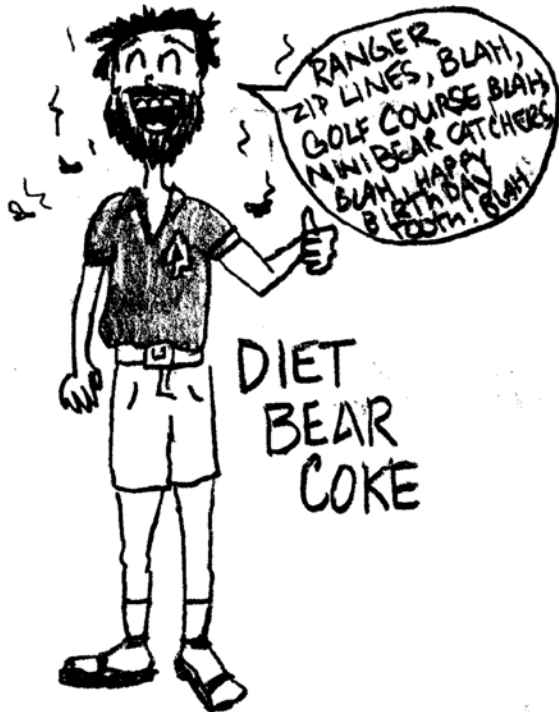 RANGER
ZIP LINES, BLAH,
GOLF COURSE BLAH,
MINI BEAR CATCHERS,
BLAH, HAPPY
BIRTHDAY
TOOTH. BLAH.
DIET
BEAR
COKE